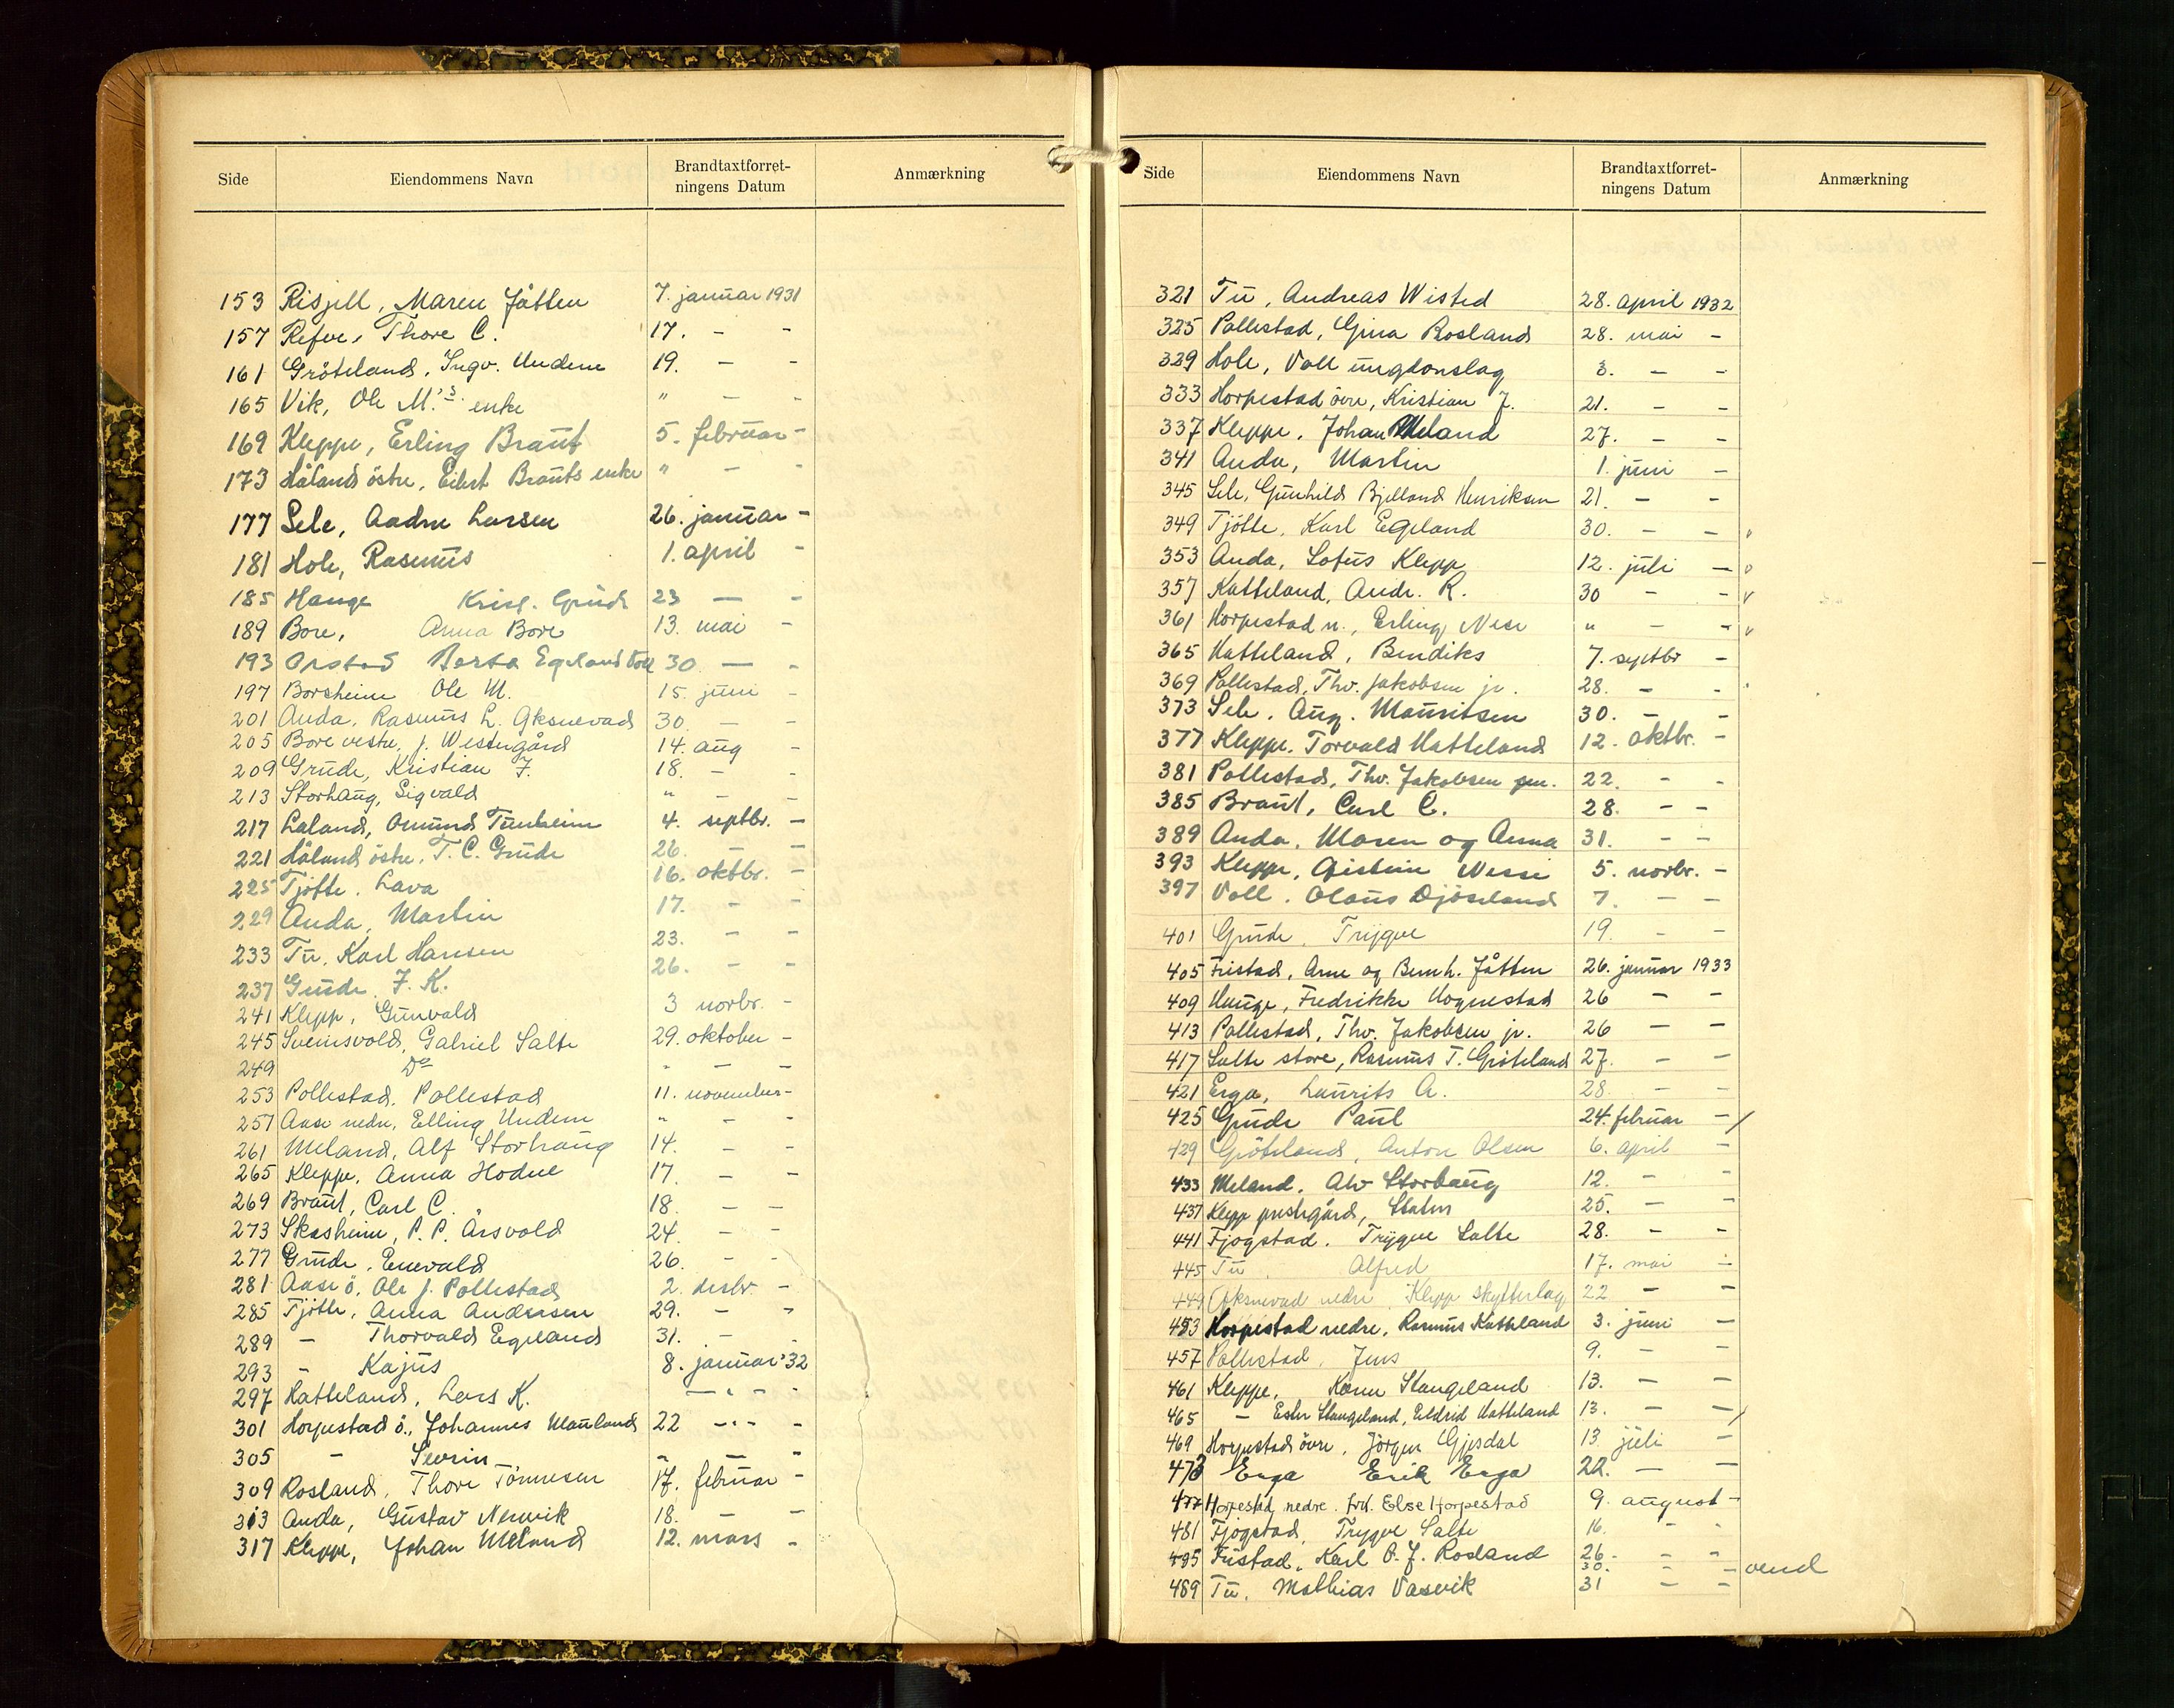 Side Eiendommens Navn Brandtaxtforret- Anmærkning
ningens Datum
153 Risjell, Maren Jåtten 7. januar 1931
157 Refve, Thore C. 17. - -
161 Gröteland, Ingv. Undem 19. - -
165 Vik, Ole M.'s enke " - -
169 Kleppe, Erling Braut 5. februar -
173 Håland östre, Eilert Brauts enke " - -
177 Sele, Aadne Larsen 26. januar -
181 Hole, Rasmus 1. april -
185 Hauge Krist. Grude 23 - -
189 Bore, Anna Bore 13. mai -
193 Orstad Berta Egeland Voll 30 - -
197 Borsheim Ole M. 15. juni -
201 Anda, Rasmus L. Öksnevad 30. - -
205 Bore vestre, J. Westergård 14. aug -
209 Grude, Kristian F. 18. - -
213 Storhaug, Sigvald " - -
217 Laland, Omund Tunheim 4. septbr. -
221 Håland östre, T. C. Grude 26. - -
225 Tjötte, Lava 16. oktbr. -
229 Anda, Martin 17. - -
233 Tu, Karl Hansen 23. - -
237 Grude, J. K. 26. - -
241 Klepp, Gunvald 3 novbr. -
245 Sveinsvold, Gabriel Salte 29. oktober -
249 Do " - -
253 Pollestad, Pollestad 11. november -
257 Aase nedre, Elling Undem " - -
261 Meland, Alf Storhaug 14. - -
265 Kleppe, Anna Hodne 17. - -
269 Braut, Carl C. 18. - -
273 Skasheim, P. P. Årsvold 24. - -
277 Grude, Enevald 26. - -
281 Aase ö. Ole J. Pollestad 2. desbr. -
285 Tjötte, Anna Andersen 29. - -
289 - Thorvald Egeland 31. - -
293 - Kajus 8. januar '32
297 Hatteland, Lars K. - " - -
301 Horpestad ö., Johannes Mauland 22 - - -
305 - Sevrin " - -
309 Rosland, Thore Tönnesen 17. februar -
313 Anda, Gustav Nervik 18. - -
317 Kleppe, Johan Meland 12. mars -
Side Eiendommens Navn Brandtaxtforret- Anmærkning
ningens Datum
321 Tu, Andreas Wisted 28. april 1932
325 Pollestad, Gina Rosland 28. mai -
329 Hole, Voll ungdomslag 3. - -
333 Horpestad övre, Kristian J. 21. - -
337 Kleppe, Johan Meland 27. - -
341 Anda, Martin 1. juni -
345 Sele, Gunhild Bjelland Henriksen 21. - -
349 Tjötte, Karl Egeland 30. - -
353 Anda, Lotus Klepp 12. juli -
357 Hatteland, Andr. R. 30 - -
361 Horpestad n., Erling Nese " - -
365 Hatteland, Bendiks 7. septbr -
369 Pollestad, Thv. Jakobsen jr. 28. - -
373 Sele, Aug. Mauritsen 30. - -
377 Kleppe, Torvald Hatteland 12. oktbr. -
381 Pollestad, Thv. Jakobsen sen. 22. - -
385 Braut, Carl C. 28. - -
389 Anda, Maren og Anna 31. - -
393 Kleppe, Öistein Nesse 5. novbr. -
397 Voll, Olaus Djöseland 7. - -
401 Grude, Trygve 19. - -
405 Fristad, Arne og Bernh. Jåtten 26. januar 1933
409 Hauge, Fredrikke Hognestad 26 - -
413 Pollestad, Thv. Jakobsen jr. 26 - -
417 Salte store, Rasmus T. Gröteland 27. - -
421 Erga, Laurits A. 28. - -
425 Grude Paul 24. februar -
429 Gröteland, Anton Olsen 6. april -
433 Meland, Alv Storhaug 12. - -
437 Klepp prestegård, Staten 25. - -
441 Fjogstad, Trygve Salte 28. - -
445 Tu Alfred 17. mai -
449 Öksnevad nedre, Klepp skytterlag 22 - -
453 Horpestad nedre, Rasmus Hatteland 3. juni -
457 Pollestad, Jens 9. - -
461 Kleppe, Karen Stangeland 13. - -
465 - Ester Stangeland, Eldrid Hatteland 13. - -
469 Horpestad övre, Jörgen Gjesdal 13 juli -
473 Erga Erik Erga 22. - -
477 Horpestad nedre. frk. Else Horpestad 9. august -
481 Fjogstad, Trygve Salte 16. - -
485 Fristad, Karl O. J. Rosland 26. - -
30. - -
489 Tu, Mathias Vasvik 31 - -
vend